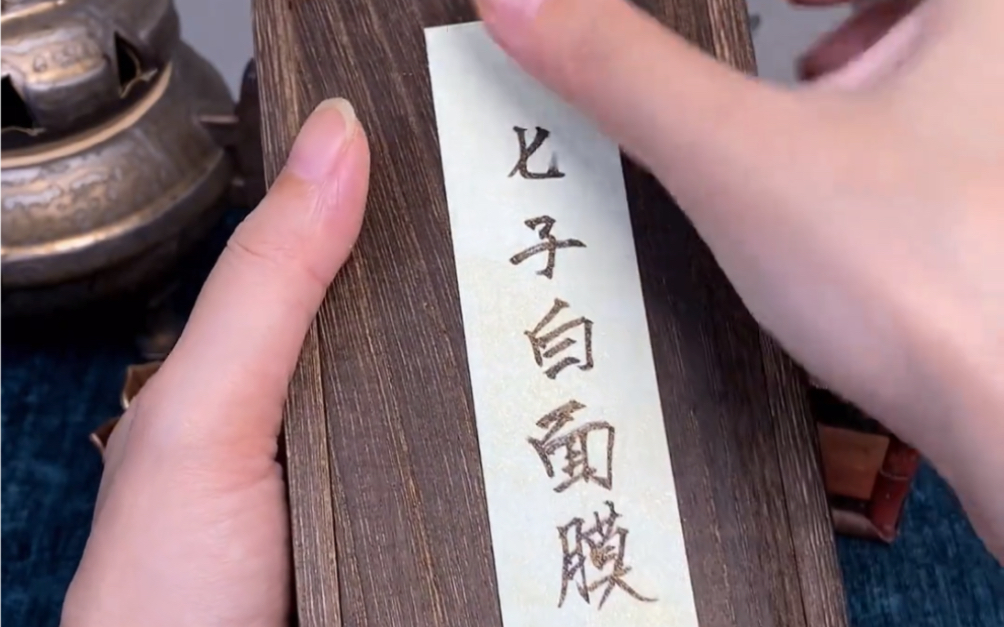 七子白面膜